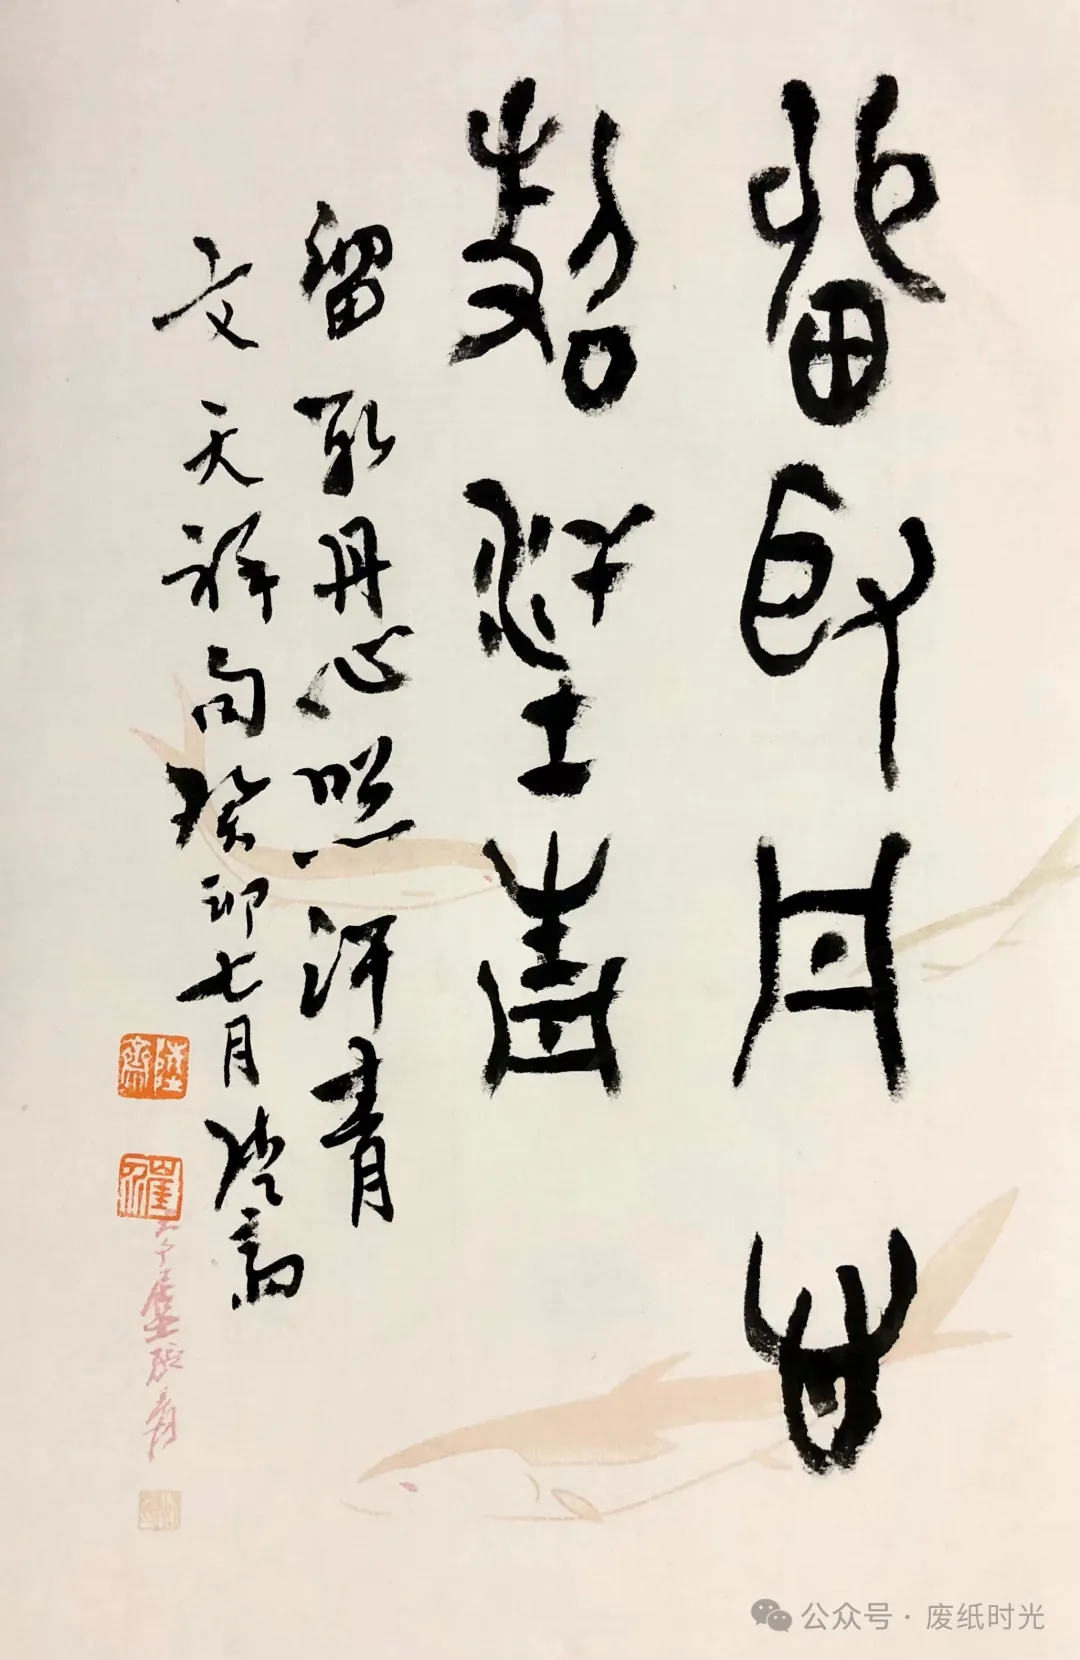 留取丹心
照汗青
留取丹心照汗青
文天祥句癸卯七月陸翁
陸齋
公众号·废纸时光